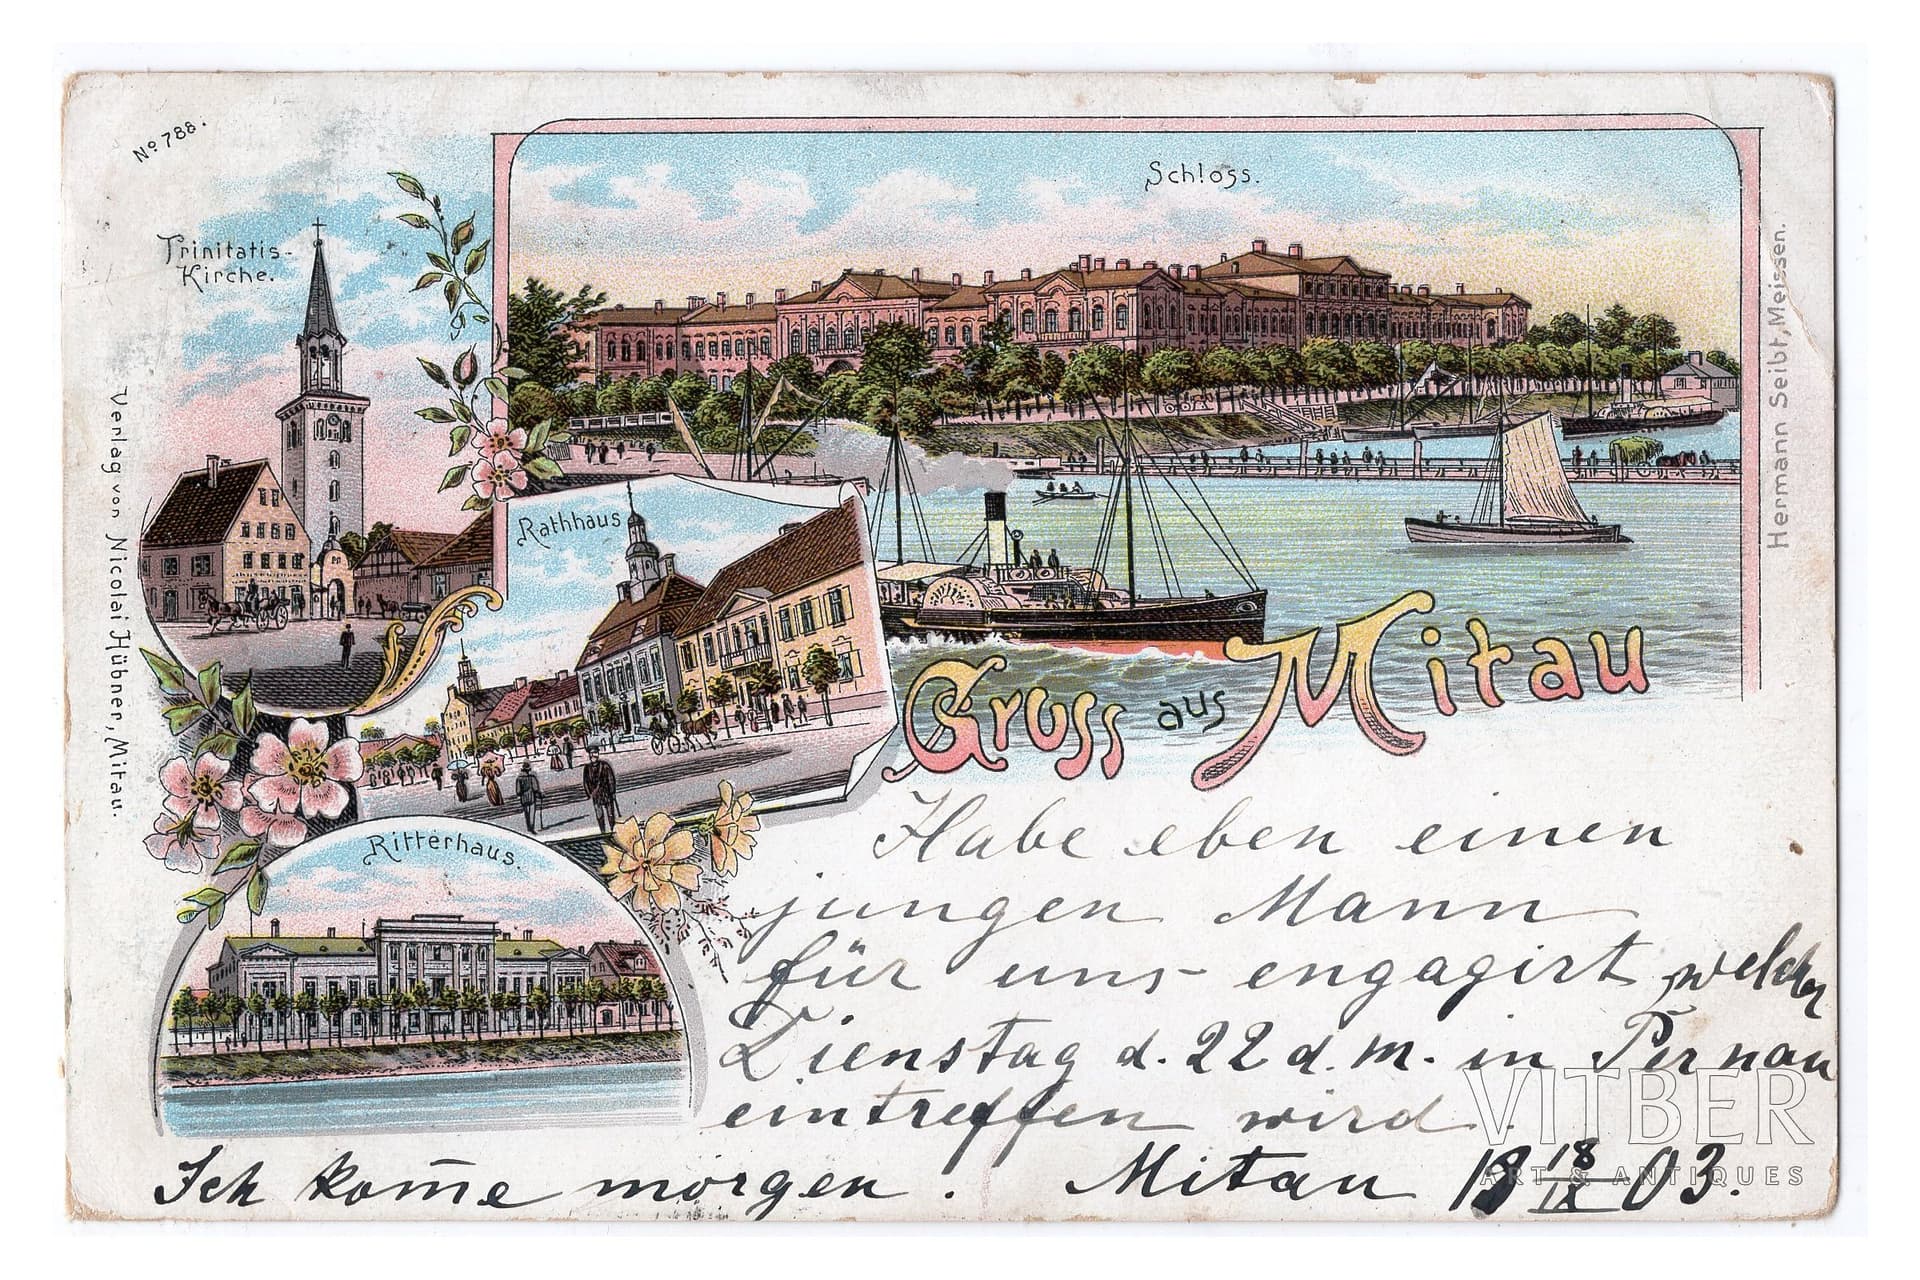 No 788.
Trinitatis-
Kirche.
Schloss.
Rathhaus
Ritterhaus.
Verlag von Nicolai Hübner, Mitau.
Hermann Seibt, Meissen.
Gruss aus Mitau
Habe eben einen
jungen Mann
für uns engagirt welcher
Dienstag d. 22 d. M. in Pernau
eintreffen wird.
Ich kom̅e morgen. Mitau 18/IX 03.
VITBER
ART & ANTIQUES